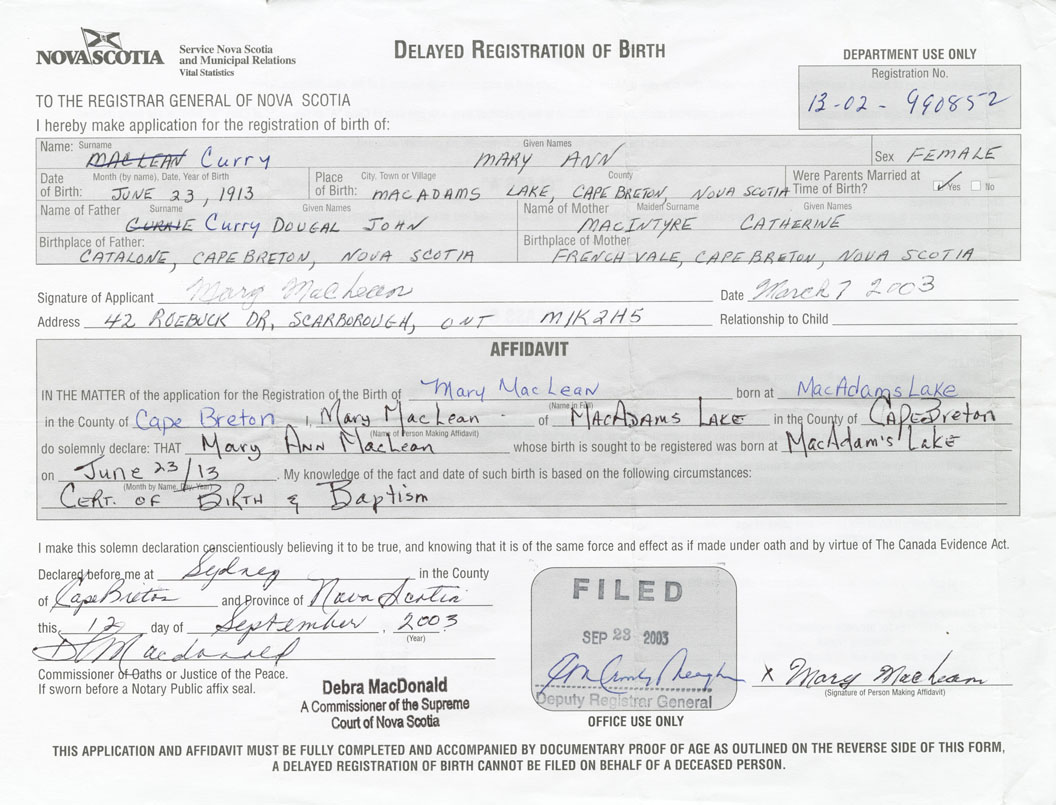 NOVA SCOTIA
Service Nova Scotia
and Municipal Relations
Vital Statistics
DELAYED REGISTRATION OF BIRTH
DEPARTMENT USE ONLY
Registration No.
13-02-990852
TO THE REGISTRAR GENERAL OF NOVA SCOTIA
I hereby make application for the registration of birth of:
Name: Surname Given Names
MACLEAN Curry MARY ANN Sex FEMALE
Date of Birth: Month (by name), Date, Year of Birth Place of Birth: City, Town or Village County Were Parents Married at Time of Birth?
JUNE 23, 1913 MACADAMS LAKE, CAPE BRETON, NOVA SCOTIA Yes No
Name of Father Surname Given Names Name of Mother Maiden Surname Given Names
CURRIE Curry DOUGAL JOHN MACINTYRE CATHERINE
Birthplace of Father: Birthplace of Mother
CATALONE, CAPE BRETON, NOVA SCOTIA FRENCH VALE, CAPE BRETON, NOVA SCOTIA
Signature of Applicant Mary MacLean Date March 7 2003
Address 42 ROEBUCK DR, SCARBOROUGH, ONT M1K2H5 Relationship to Child
AFFIDAVIT
IN THE MATTER of the application for the Registration of the Birth of Mary MacLean born at MacAdams Lake
(Name in Full)
in the County of Cape Breton I, Mary MacLean of MacAdams Lake in the County of Cape Breton
(Name of Person Making Affidavit)
do solemnly declare: THAT Mary Ann MacLean whose birth is sought to be registered was born at MacAdam's Lake
on June 23/13. My knowledge of the fact and date of such birth is based on the following circumstances:
(Month by Name, Day, Year)
CERT. OF BIRTH & Baptism
I make this solemn declaration conscientiously believing it to be true, and knowing that it is of the same force and effect as if made under oath and by virtue of The Canada Evidence Act.
Declared before me at Sydney in the County
of Cape Breton and Province of Nova Scotia
this 12 day of September, 2003
(Year)
D Macdonald
Commissioner of Oaths or Justice of the Peace.
If sworn before a Notary Public affix seal.
Debra MacDonald
A Commissioner of the Supreme
Court of Nova Scotia
FILED
SEP 23 2003
Deputy Registrar General
OFFICE USE ONLY
X Mary MacLean
(Signature of Person Making Affidavit)
THIS APPLICATION AND AFFIDAVIT MUST BE FULLY COMPLETED AND ACCOMPANIED BY DOCUMENTARY PROOF OF AGE AS OUTLINED ON THE REVERSE SIDE OF THIS FORM,
A DELAYED REGISTRATION OF BIRTH CANNOT BE FILED ON BEHALF OF A DECEASED PERSON.